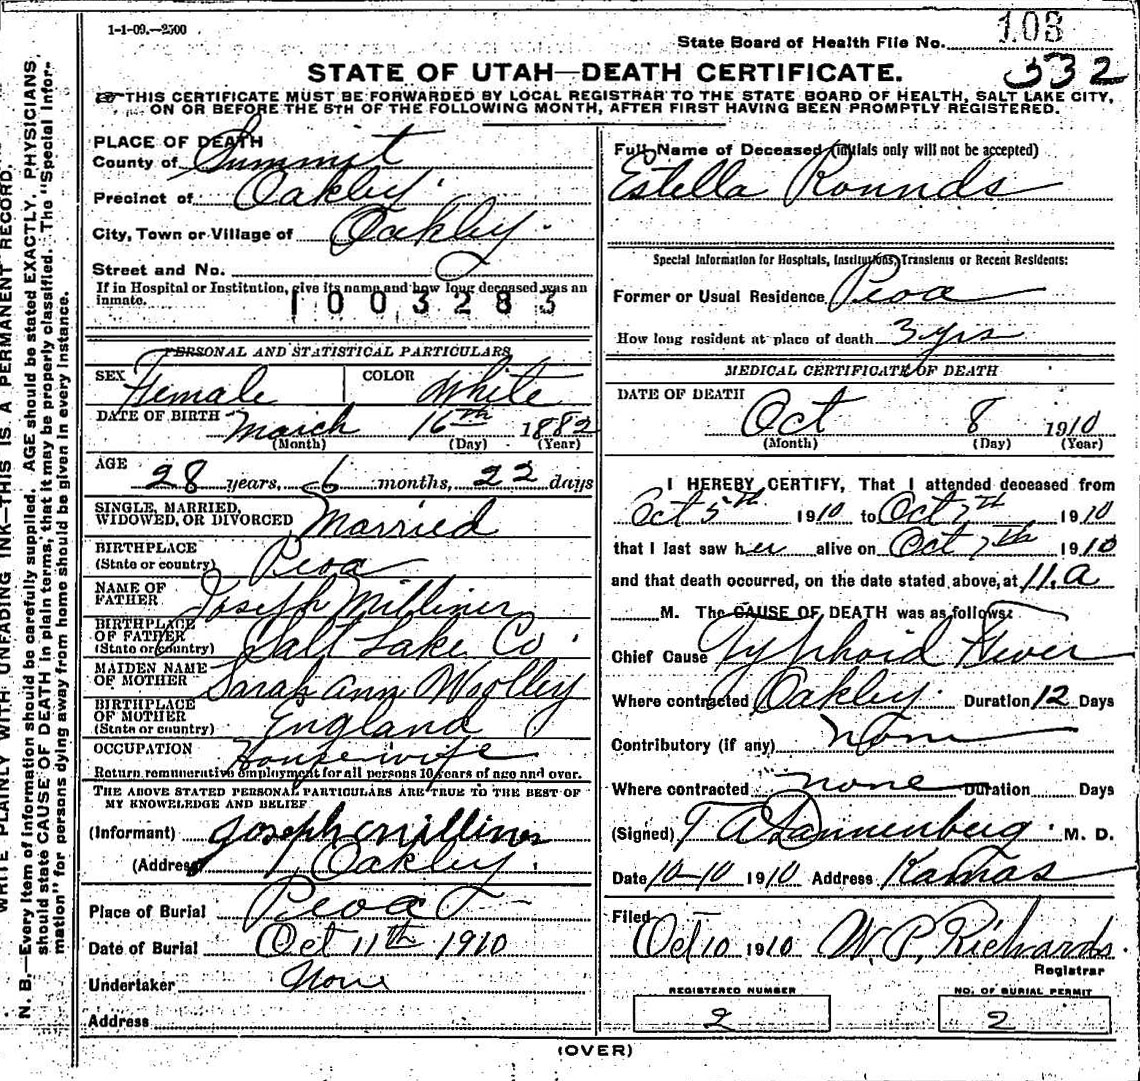 1-1-09.—2500
State Board of Health File No. 103
332
STATE OF UTAH—DEATH CERTIFICATE.
THIS CERTIFICATE MUST BE FORWARDED BY LOCAL REGISTRAR TO THE STATE BOARD OF HEALTH, SALT LAKE CITY,
ON OR BEFORE THE 5TH OF THE FOLLOWING MONTH, AFTER FIRST HAVING BEEN PROMPTLY REGISTERED.
WRITE PLAINLY WITH UNFADING INK—THIS IS A PERMANENT RECORD.
N. B.—Every item of information should be carefully supplied. AGE should be stated EXACTLY. PHYSICIANS
should state CAUSE OF DEATH in plain terms, that it may be properly classified. The "Special Infor-
mation" for persons dying away from home should be given in every instance.
PLACE OF DEATH
County of Summit
Precinct of Oakley
City, Town or Village of Oakley
Street and No.
If in Hospital or Institution, give its name and how long deceased was an
inmate.
1003283
PERSONAL AND STATISTICAL PARTICULARS
SEX Female COLOR White
DATE OF BIRTH March 16th 1882
(Month) (Day) (Year)
AGE 28 years, 6 months, 22 days
SINGLE, MARRIED,
WIDOWED, OR DIVORCED Married
BIRTHPLACE
(State or country) Peoa
NAME OF
FATHER Joseph Milliner
BIRTHPLACE
OF FATHER
(State or country) Salt Lake Co.
MAIDEN NAME
OF MOTHER Sarah Ann Woolley
BIRTHPLACE
OF MOTHER
(State or country) England
OCCUPATION Housewife
Return remunerative employment for all persons 10 years of age and over.
THE ABOVE STATED PERSONAL PARTICULARS ARE TRUE TO THE BEST OF
MY KNOWLEDGE AND BELIEF
(Informant) Joseph Milliner
(Address) Oakley
Place of Burial Peoa
Date of Burial Oct 11th 1910
Undertaker None
Address
Full Name of Deceased (initials only will not be accepted)
Estella Rounds
Special Information for Hospitals, Institutions, Transients or Recent Residents:
Former or Usual Residence Peoa
How long resident at place of death 3 yrs
MEDICAL CERTIFICATE OF DEATH
DATE OF DEATH
Oct 8 1910
(Month) (Day) (Year)
I HEREBY CERTIFY, That I attended deceased from
Oct 5th 1910 to Oct 7th 1910
that I last saw her alive on Oct 7th 1910
and that death occurred, on the date stated above, at 11.a
M. The CAUSE OF DEATH was as follows:
Chief Cause Typhoid Fever
Where contracted Oakley. Duration 12 Days
Contributory (if any) None
Where contracted none Duration Days
(Signed) T A Dannenberg M. D.
Date 10-10 1910 Address Kamas
Filed Oct 10 1910 W. P. Richards.
Registrar
REGISTERED NUMBER
2
NO. OF BURIAL PERMIT
2
(OVER)